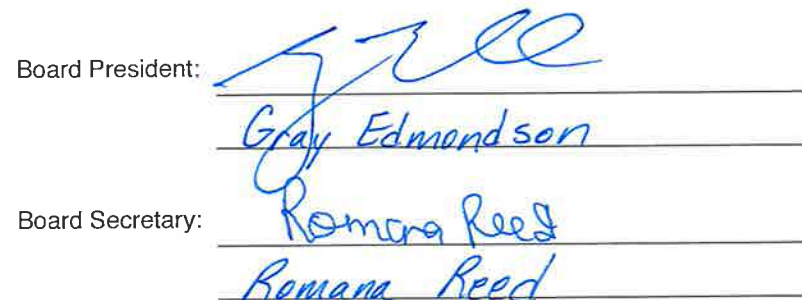 Board President:
Gray Edmondson
Board Secretary: Romana Reed
Romana Reed